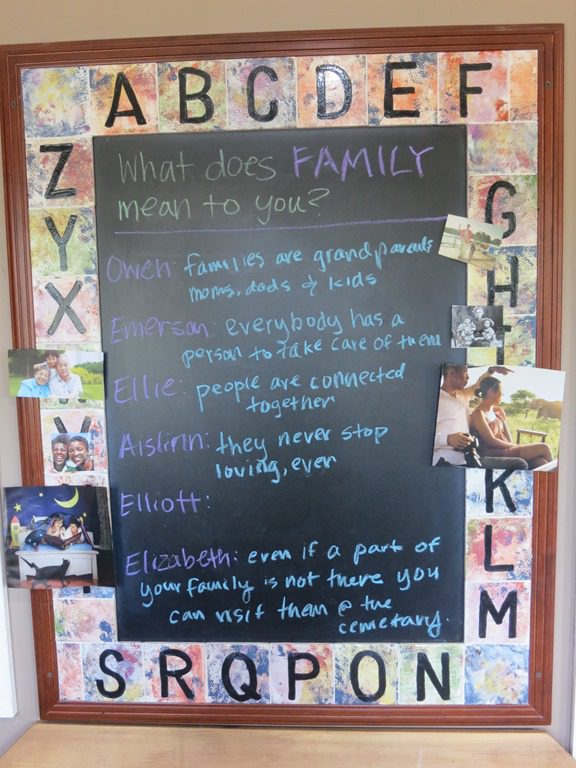 A B C D E F
What does FAMILY
mean to you?
Owen: families are grandparents
moms, dads & kids
Emerson: everybody has a
person to take care of them
Ellie: people are connected
together
Aislinn: they never stop
loving, even
Elliott:
Elizabeth: even if a part of
your family is not there you
can visit them @ the
cemetary.
G
H
K
L
M
S R Q P O N
Z
Y
X